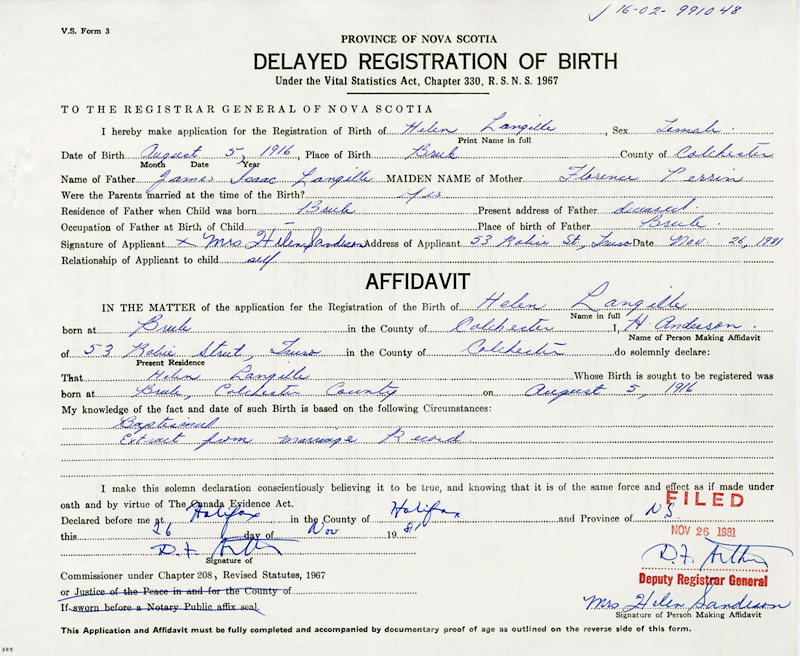 16-02-991048
V.S. Form 3
PROVINCE OF NOVA SCOTIA
DELAYED REGISTRATION OF BIRTH
Under the Vital Statistics Act, Chapter 330, R.S.N.S. 1967
TO THE REGISTRAR GENERAL OF NOVA SCOTIA
I hereby make application for the Registration of Birth of Helen Langille, Sex Female.
Print Name in full
Date of Birth August 5, 1916, Place of Birth Brule County of Colchester
Month Date Year
Name of Father James Isaac Langille MAIDEN NAME of Mother Florence Perrin
Were the Parents married at the time of the Birth? Yes
Residence of Father when Child was born Brule Present address of Father deceased.
Occupation of Father at Birth of Child - Place of birth of Father Brule
Signature of Applicant x Mrs Helen Sandeson Address of Applicant 53 Robie St., Truro Date Nov. 26, 1981
Relationship of Applicant to child self
AFFIDAVIT
IN THE MATTER of the application for the Registration of the Birth of Helen Langille
Name in full
born at Brule in the County of Colchester I, H. Anderson.
Name of Person Making Affidavit
of 53 Robie Street, Truro in the County of Colchester do solemnly declare:
Present Residence
That Helen Langille Whose Birth is sought to be registered was
born at Brule, Colchester County on August 5, 1916
My knowledge of the fact and date of such Birth is based on the following Circumstances:
Baptismal
Extract from marriage Record
I make this solemn declaration conscientiously believing it to be true, and knowing that it is of the same force and effect as if made under
oath and by virtue of The Canada Evidence Act.
FILED
Declared before me at Halifax in the County of Halifax and Province of NS
this 26 day of Nov 1981
NOV 26 1981
D.F.
Signature of
D.F.
Commissioner under Chapter 208, Revised Statutes, 1967
Deputy Registrar General
or Justice of the Peace in and for the County of
If sworn before a Notary Public affix seal.
Mrs Helen Sandeson
Signature of Person Making Affidavit
This Application and Affidavit must be fully completed and accompanied by documentary proof of age as outlined on the reverse side of this form.
385